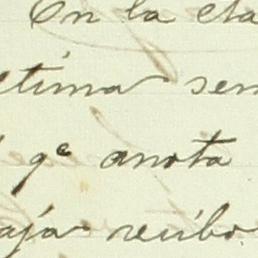 En la eta
ltima sem
qe anota
aja recibo.